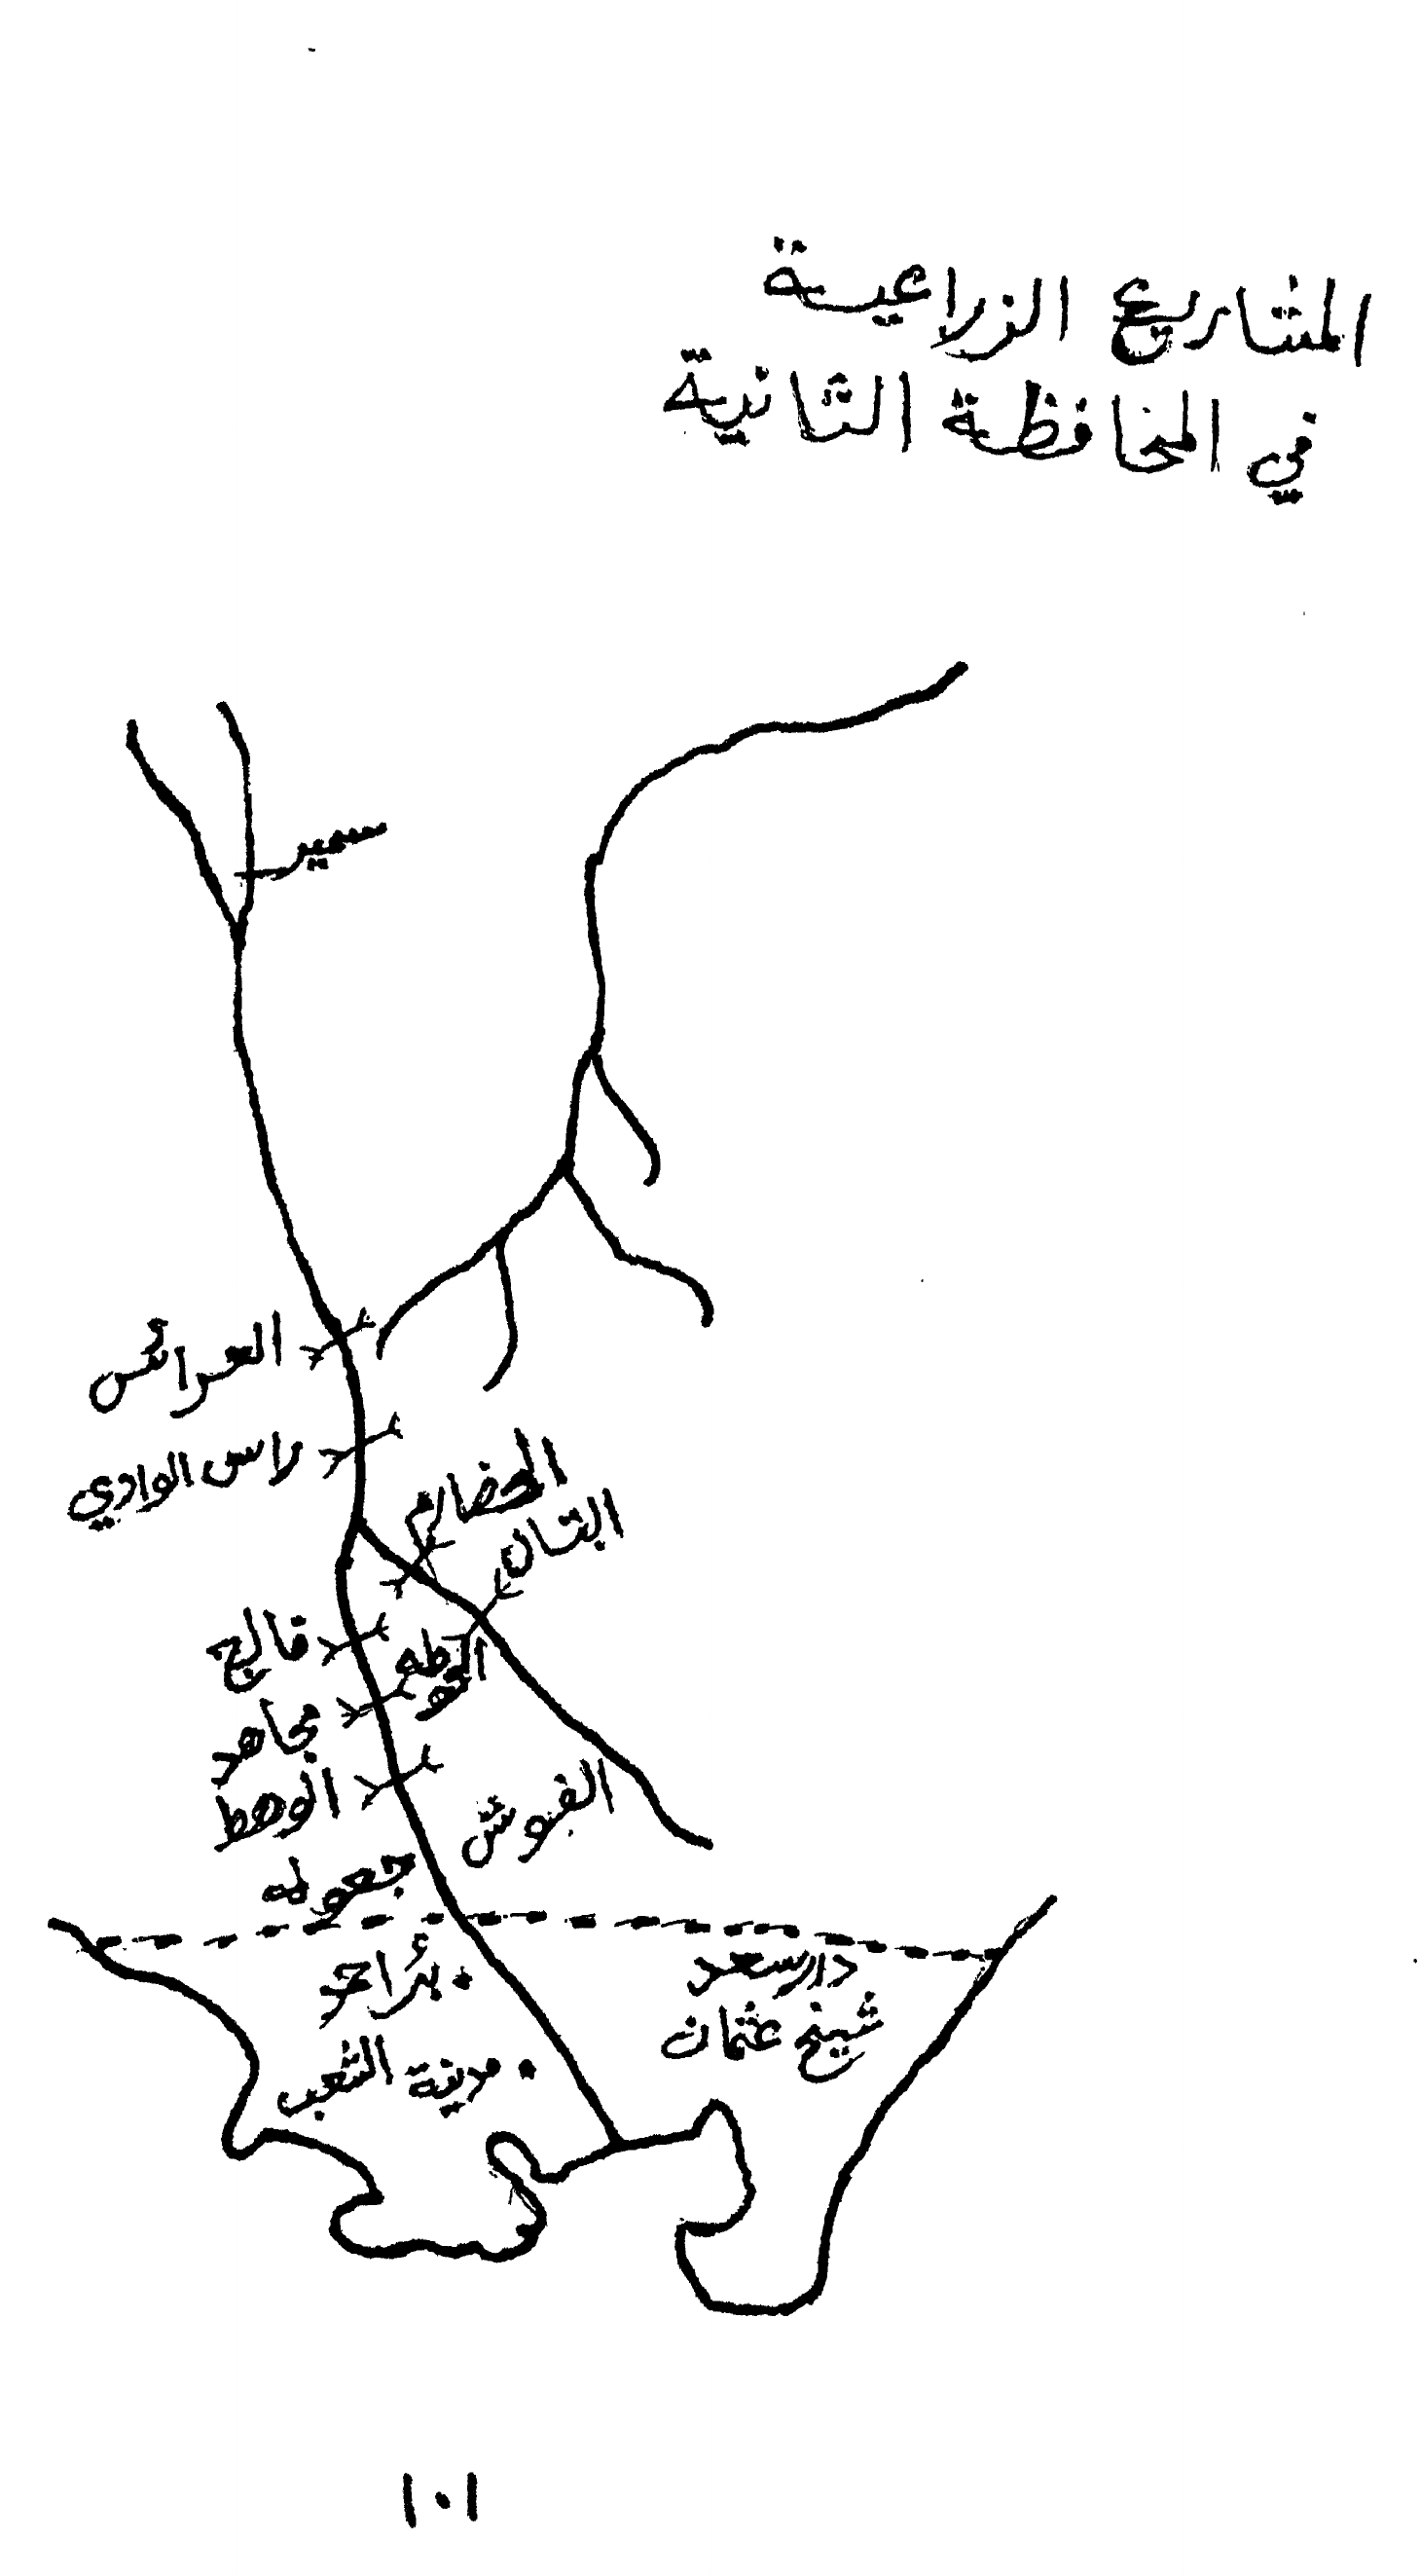 المشاريع الزراعية
في المحافظة الثانية
سمير
العرائس
راس الوادي
الحضارم
البتان
فالج
مجاهد
الوهط
الفيوش
جعولة
بئر احمد
دار سعد
شيخ عثمان
مدينة الشعب
١٠١